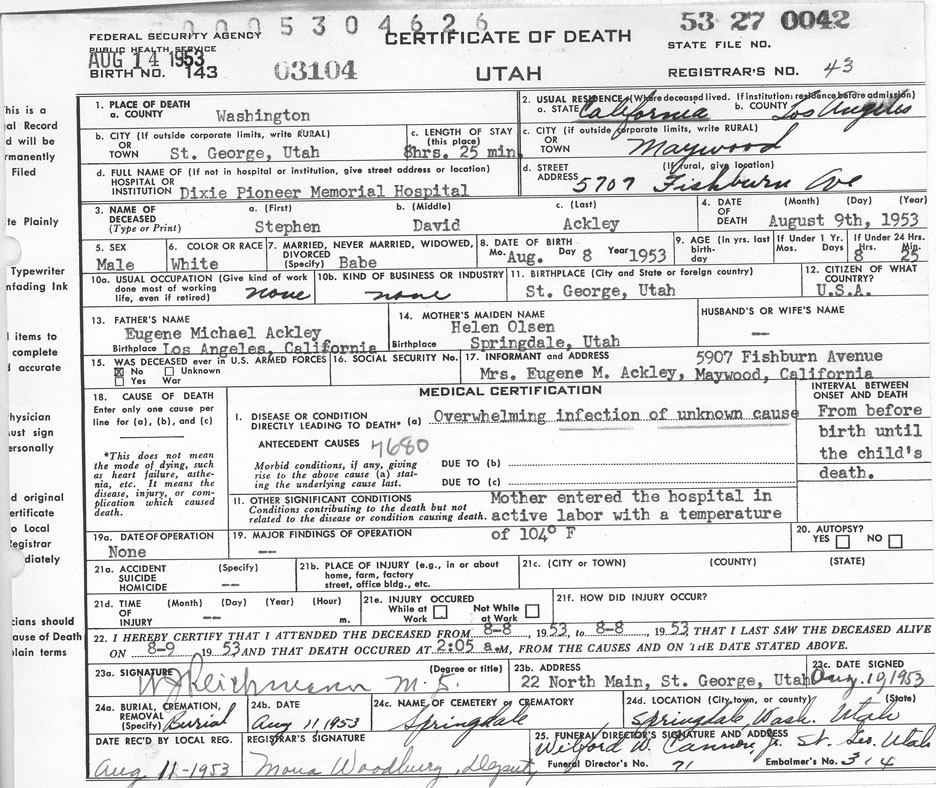 0009 5 3 0 4 6 2 6
53 27 0042
FEDERAL SECURITY AGENCY
PUBLIC HEALTH SERVICE
CERTIFICATE OF DEATH
STATE FILE NO.
AUG 14 1953
BIRTH NO. 143
03104
UTAH
REGISTRAR'S NO. 43
1. PLACE OF DEATH
a. COUNTY Washington
2. USUAL RESIDENCE (Where deceased lived. If institution: residence before admission)
a. STATE California b. COUNTY Los Angeles
b. CITY (If outside corporate limits, write RURAL)
OR
TOWN St. George, Utah
c. LENGTH OF STAY
(this place)
8hrs. 25 min
c. CITY (if outside corporate limits, write RURAL)
OR
TOWN Maywood
d. FULL NAME OF (If not in hospital or institution, give street address or location)
HOSPITAL OR
INSTITUTION Dixie Pioneer Memorial Hospital
d. STREET (If rural, give location)
ADDRESS 5707 Fishburn Ave
3. NAME OF
DECEASED
(Type or Print)
a. (First) b. (Middle) c. (Last)
Stephen David Ackley
4. DATE
OF
DEATH
(Month) (Day) (Year)
August 9th, 1953
5. SEX
Male
6. COLOR OR RACE
White
7. MARRIED, NEVER MARRIED, WIDOWED,
DIVORCED
(Specify) Babe
8. DATE OF BIRTH
Mo. Aug. Day 8 Year 1953
9. AGE (in yrs. last
birth-
day
If Under 1 Yr.
Mos. Days
If Under 24 Hrs.
Hrs. Min.
8 25
10a. USUAL OCCUPATION (Give kind of work
done most of working
life, even if retired) none
10b. KIND OF BUSINESS OR INDUSTRY
none
11. BIRTHPLACE (City and State or foreign country)
St. George, Utah
12. CITIZEN OF WHAT
COUNTRY?
U.S.A.
13. FATHER'S NAME
Eugene Michael Ackley
Birthplace Los Angeles, California
14. MOTHER'S MAIDEN NAME
Helen Olsen
Birthplace Springdale, Utah
HUSBAND'S OR WIFE'S NAME
--
15. WAS DECEASED ever in U.S. ARMED FORCES
X No Unknown
Yes War
16. SOCIAL SECURITY No.
17. INFORMANT and ADDRESS 5907 Fishburn Avenue
Mrs. Eugene M. Ackley, Maywood, California
18. CAUSE OF DEATH
Enter only one cause per
line for (a), (b), and (c)
*This does not mean
the mode of dying, such
as heart failure, asthe-
nia, etc. It means the
disease, injury, or com-
plication which caused
death.
MEDICAL CERTIFICATION
I. DISEASE OR CONDITION
DIRECTLY LEADING TO DEATH* (a) Overwhelming infection of unknown cause
ANTECEDENT CAUSES 7680
Morbid conditions, if any, giving
rise to the above cause (a) stat-
ing the underlying cause last.
DUE TO (b)
DUE TO (c)
11. OTHER SIGNIFICANT CONDITIONS
Conditions contributing to the death but not
related to the disease or condition causing death.
Mother entered the hospital in
active labor with a temperature
of 104° F
INTERVAL BETWEEN
ONSET AND DEATH
From before
birth until
the child's
death.
19a. DATE OF OPERATION
None
19. MAJOR FINDINGS OF OPERATION
--
20. AUTOPSY?
YES NO
21a. ACCIDENT (Specify)
SUICIDE
HOMICIDE --
21b. PLACE OF INJURY (e.g., in or about
home, farm, factory
street, office bldg., etc.
21c. (CITY OR TOWN) (COUNTY) (STATE)
21d. TIME (Month) (Day) (Year) (Hour)
OF
INJURY -- m.
21e. INJURY OCCURED
While at Work
Not While at Work
21f. HOW DID INJURY OCCUR?
22. I HEREBY CERTIFY THAT I ATTENDED THE DECEASED FROM 8-8, 1953, to 8-8, 1953 THAT I LAST SAW THE DECEASED ALIVE
ON 8-9, 1953 AND THAT DEATH OCCURED AT 2:05 a.M, FROM THE CAUSES AND ON THE DATE STATED ABOVE.
23a. SIGNATURE (Degree or title)
M.D.
23b. ADDRESS
22 North Main, St. George, Utah
23c. DATE SIGNED
Aug. 10, 1953
24a. BURIAL, CREMATION,
REMOVAL
(Specify) Burial
24b. DATE
Aug 11, 1953
24c. NAME OF CEMETERY OR CREMATORY
Springdale
24d. LOCATION (City, town, or county) (State)
Springdale, Wash. Utah
DATE REC'D BY LOCAL REG.
Aug 11-1953
REGISTRAR'S SIGNATURE
Mona Woodbury, Deputy
25. FUNERAL DIRECTOR'S SIGNATURE AND ADDRESS
Wilford W. Cannon Jr. St. Geo. Utah
Funeral Director's No. 71 Embalmer's No. 314
his is a
al Record
d will be
rmanently
Filed
te Plainly
Typewriter
nfading Ink
l items to
complete
d accurate
hysician
ust sign
ersonally
d original
ertificate
o Local
egistrar
diately
cians should
ause of Death
plain terms